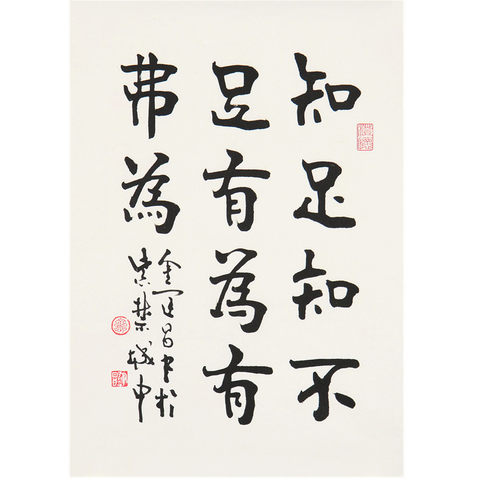 知足知不
足有為有
弗為
金運昌書於
紫禁城中